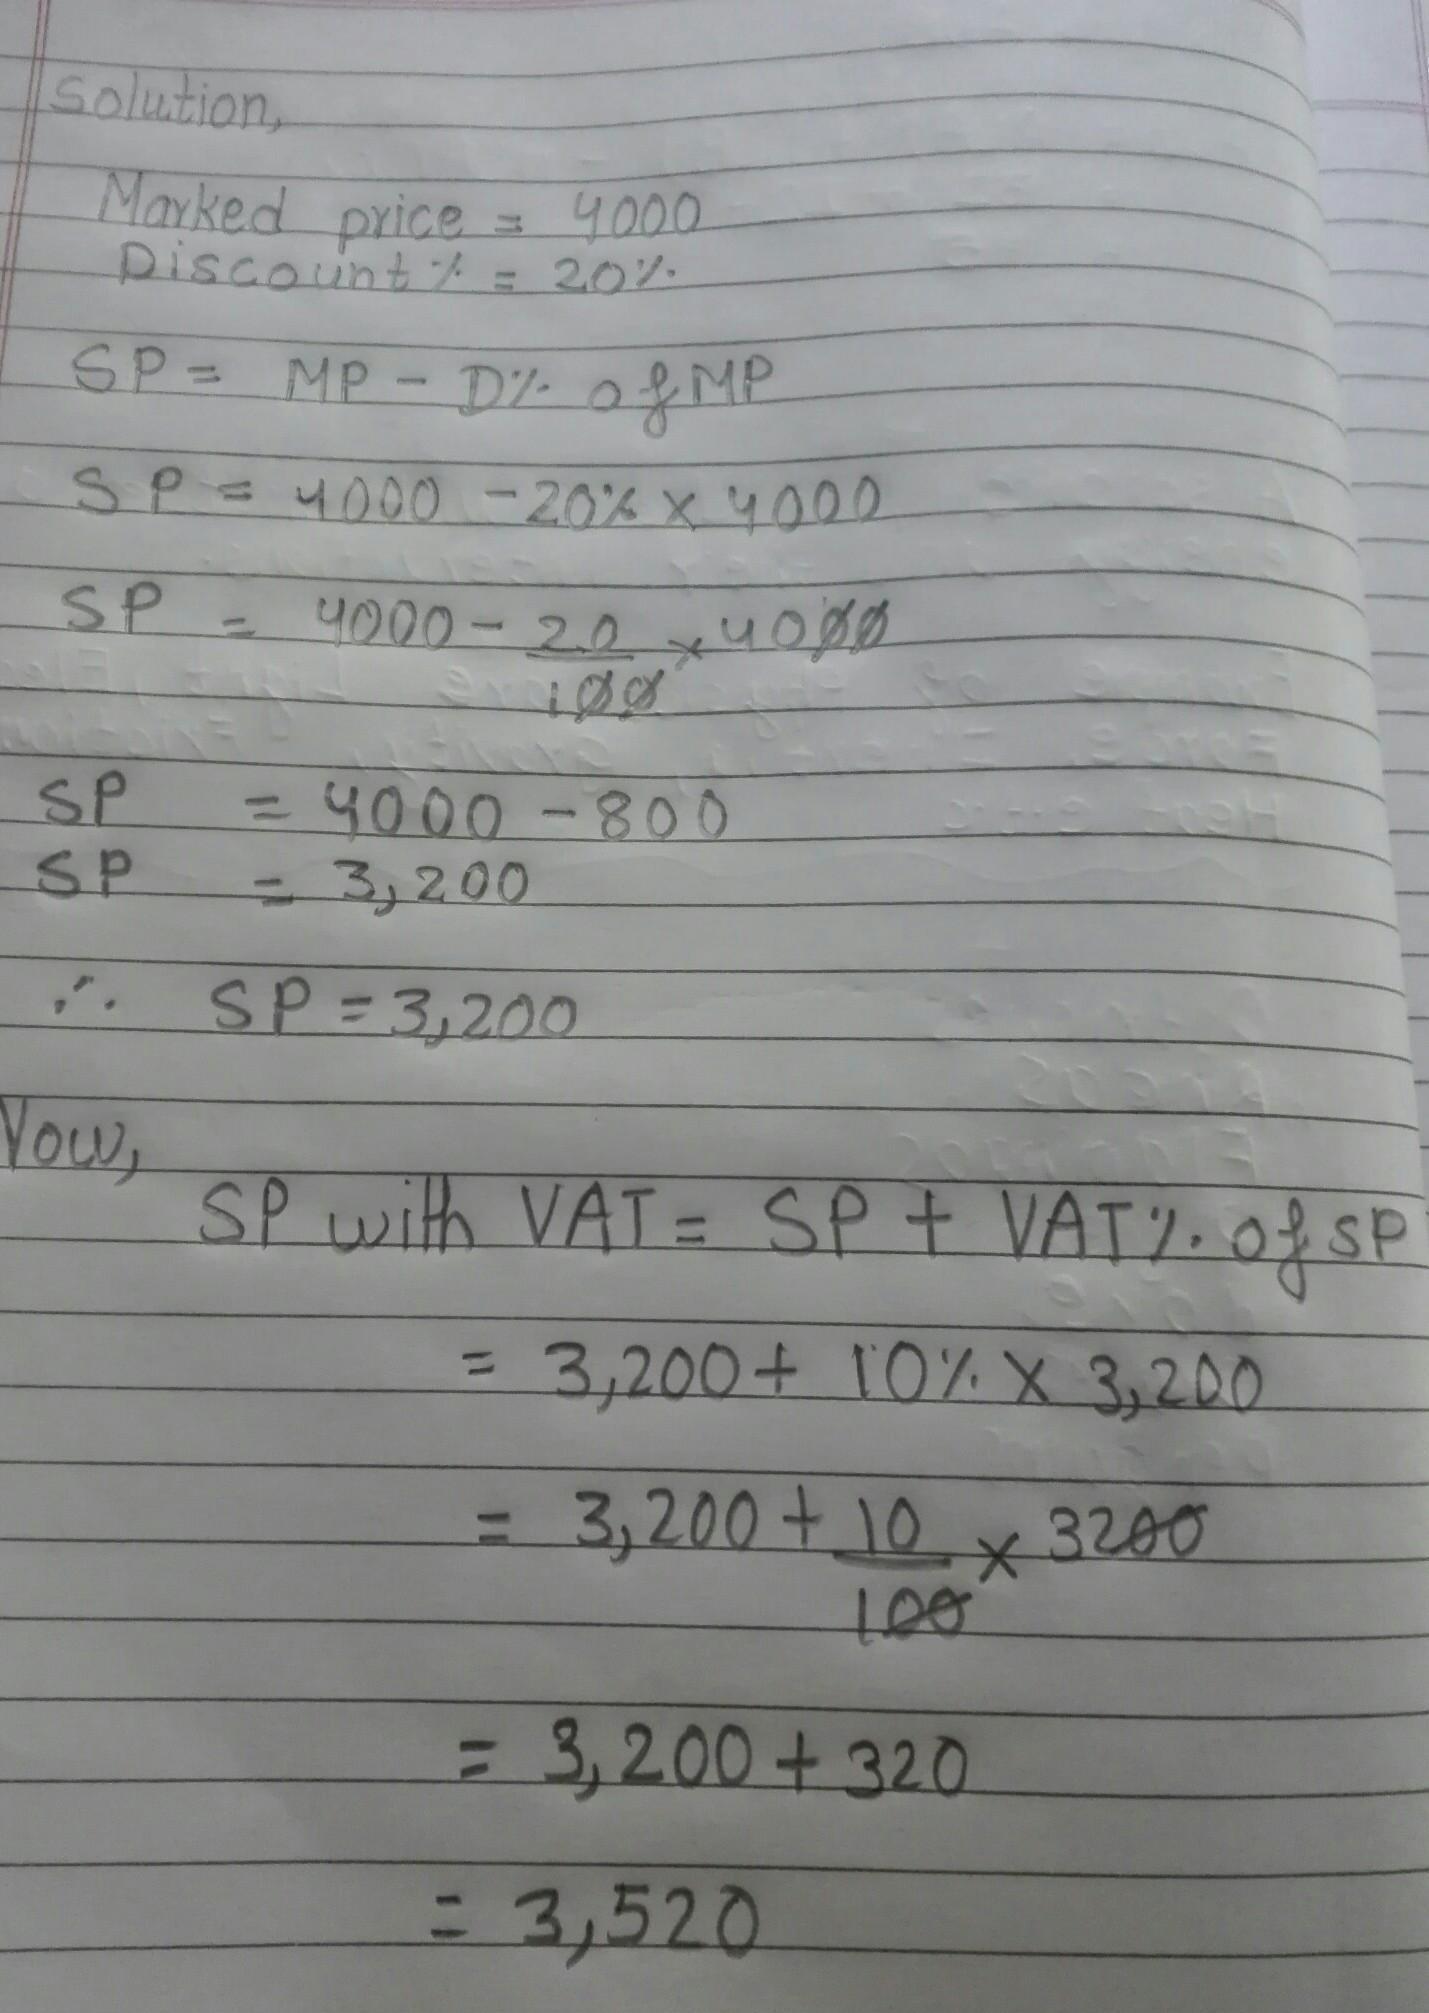 Solution,
Marked price = 4000
Discount % = 20%
SP = MP - D% of MP
SP = 4000 - 20% x 4000
SP = 4000 - 20/100 x 4000
SP = 4000 - 800
SP = 3,200
∴ SP = 3,200
Now,
SP with VAT = SP + VAT% of SP
= 3,200 + 10% x 3,200
= 3,200 + 10/100 x 3200
= 3,200 + 320
= 3,520